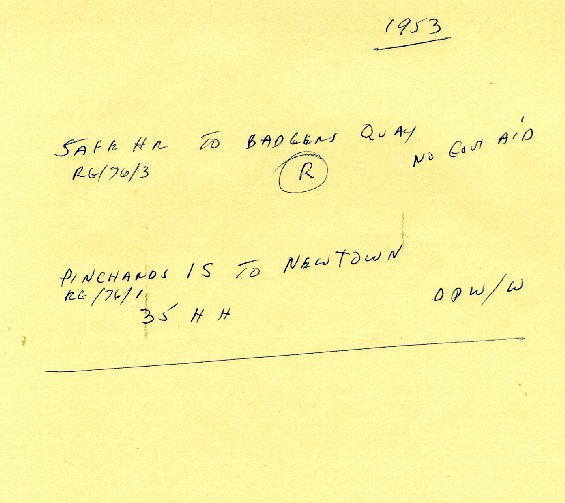 1953
SAFE HR TO BADGERS QUAY NO GOVT AID
RG/76/3
R
PINCHARDS IS TO NEWTOWN
RG/76/1
35 H H DPW/W